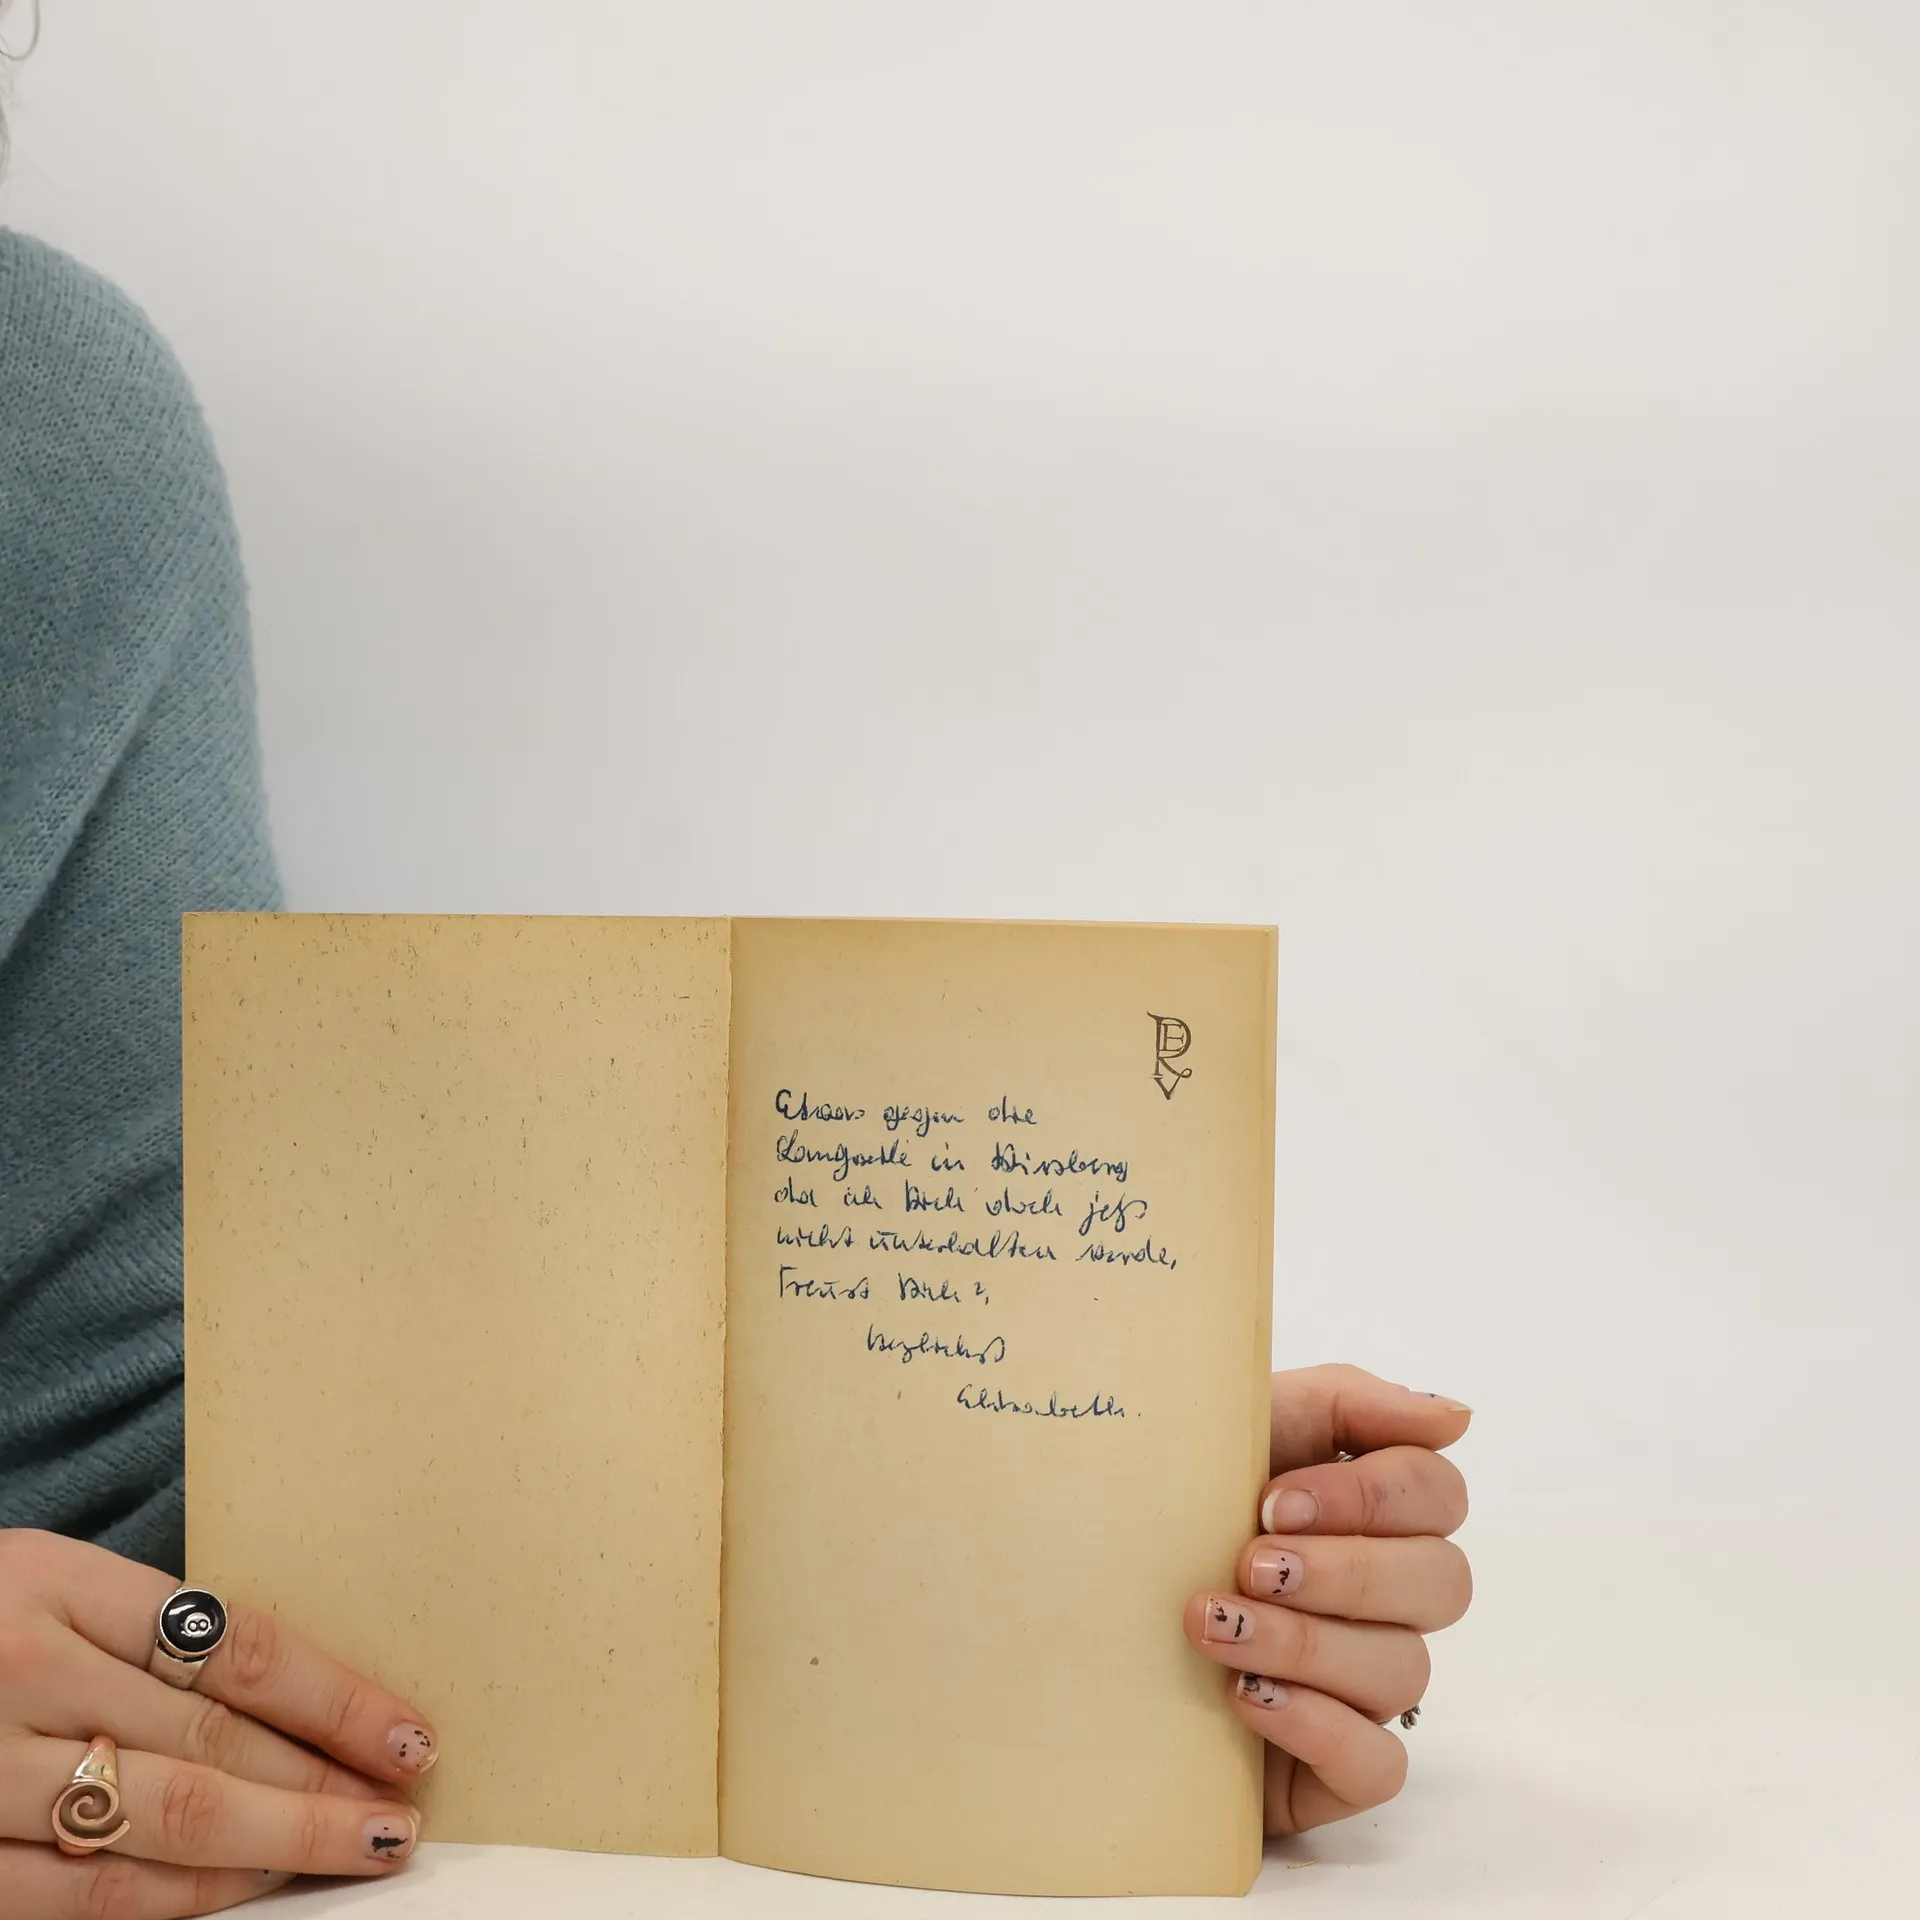 PERV
Etwas gegen die
Langweile in Nürnberg
da ich Dich doch jetzt
nicht unterhalten werde,
Freust Dich?,
herzlichst
Elisabeth.